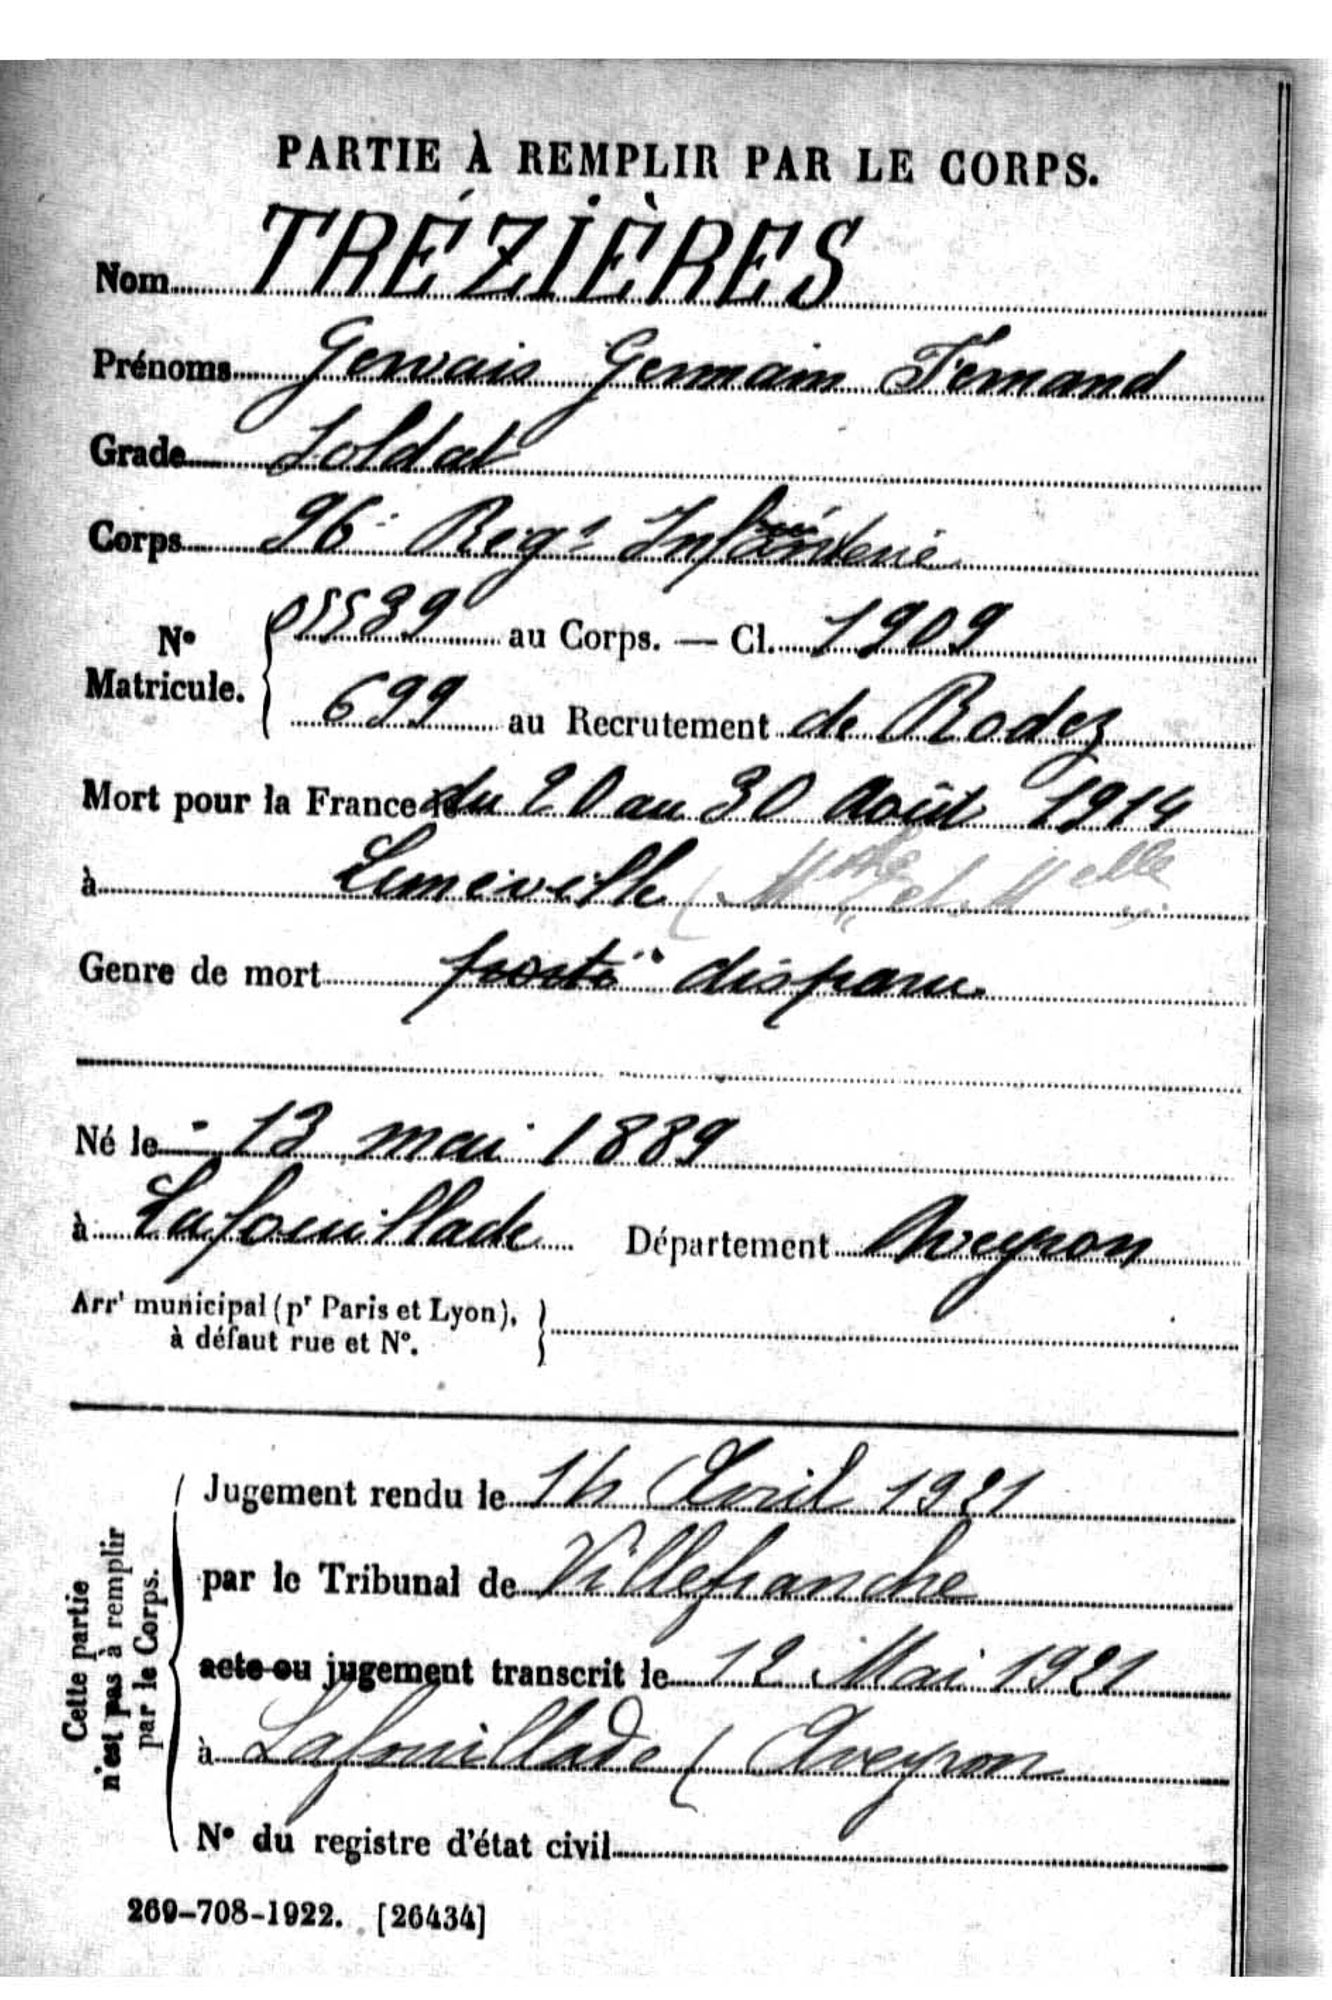 PARTIE À REMPLIR PAR LE CORPS.
Nom TRÉZIÈRES
Prénoms Gervais Germain Fernand
Grade Soldat
Corps 96e Regt Infanterie
No Matricule. { 05539 au Corps. — Cl. 1909
699 au Recrutement de Rodez
Mort pour la France le du 20 au 30 Août 1914
à Luneville (Mthe et Melle
Genre de mort porté disparu.
Né le 13 mai 1889
à Lafouillade Département Aveyron
Arrt municipal (pr Paris et Lyon),
à défaut rue et No.
Cette partie
n'est pas à remplir
par le Corps.
Jugement rendu le 14 Avril 1921
par le Tribunal de Villefranche
acte ou jugement transcrit le 12 Mai 1921
à Lafouillade (Aveyron
No du registre d'état civil
269-708-1922. [26434]